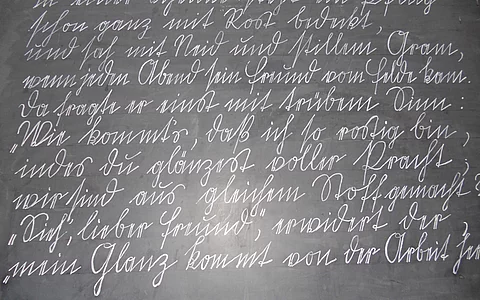 in einer Scheune liegt ein Pflug
schon ganz mit Rost bedeckt,
und sah mit Neid und stillem Gram,
wenn jeden Abend sein Freund vom Felde kam.
Da fragte er einst mit trübem Sinn:
„Wie kommt's, daß ich so rostig bin,
indes du glänzest voller Pracht;
wir sind aus gleichem Stoff gemacht?
„Sieh, lieber Freund", erwidert der,
„mein Glanz kommt von der Arbeit her